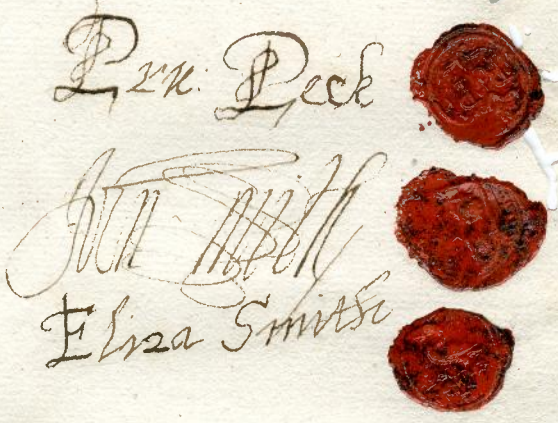 Peck
Jon Smith
Eliza Smith